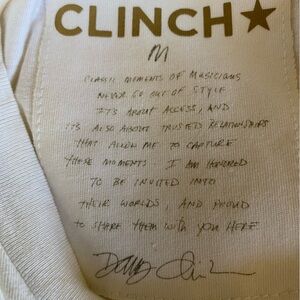 CLINCH★
M
CLASSIC MOMENTS OF MUSICIANS
NEVER GO OUT OF STYLE
IT'S ABOUT ACCESS, AND
IT'S ALSO ABOUT TRUSTED RELATIONSHIPS
THAT ALLOW ME TO CAPTURE
THESE MOMENTS. I AM HONORED
TO BE INVITED INTO
THEIR WORLDS, AND PROUD
TO SHARE THEM WITH YOU HERE
Danny Clinch